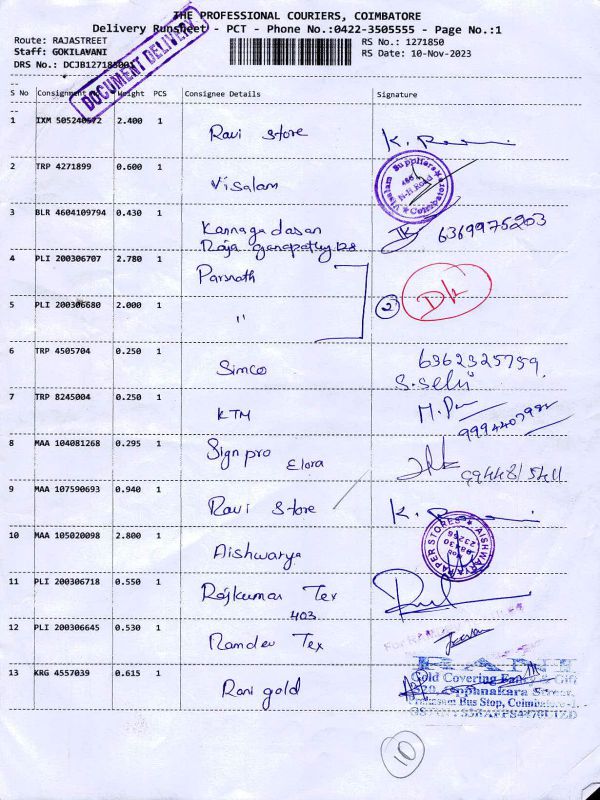 THE PROFESSIONAL COURIERS, COIMBATORE
Delivery Runsheet - PCT - Phone No.:0422-3505555 - Page No.:1
Route: RAJASTREET
RS No.: 1271850
Staff: GOKILAVANI
RS Date: 10-Nov-2023
DRS No.: DCJB1271850001
DOCUMENT DELIVERY
S No Consignment No Weight PCS Consignee Details Signature
1 IXM 505240572 2.400 1 Ravi Store K. Raani
2 TRP 4271899 0.600 1 Visalam
Visalam Suppliers
N.H. Road
Coimbatore
3 BLR 4604109794 0.430 1 Kannaga dasan 6369975203
Raja ganapathy 128
4 PLI 200306707 2.780 1 Parsnath
D/L
2
5 PLI 200306680 2.000 1 "
6 TRP 4505704 0.250 1 Simco 6362325759
S. Selvi
7 TRP 8245004 0.250 1 KTM
8 MAA 104081268 0.295 1 Sign pro Elora
9 MAA 107590693 0.940 1 Ravi Store
10 MAA 105020098 2.800 1 Aishwarya
AISHWARYA PAPER STORES
11 PLI 200306718 0.550 1 Rajkumar Tex
403
12 PLI 200306645 0.530 1 Ramdev Tex
13 KRG 4557039 0.615 1 Rani gold
RANI
Gold Covering Fancy & Gift
Oppanakara Street,
Bus Stop, Coimbatore-1.
10